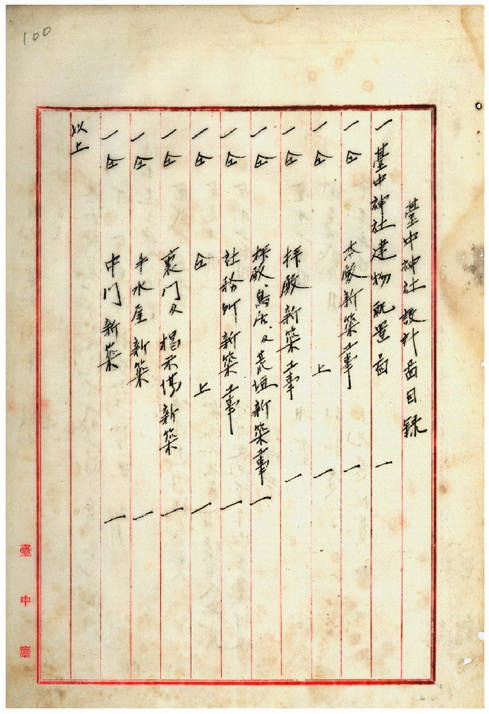 100
臺中神社設計圖目錄
一 臺中神社建物配置圖 一
一 仝 本殿新築工事 一
一 仝 上 一
一 仝 拝殿新築工事 一
一 仝 新築工事 一
一 仝 社務所新築工事 一
一 仝 仝 上 一
一 仝 裏門及掲示場新築 一
一 仝 手水屋新築 一
一 仝 中門新築 一
以上
臺中廳